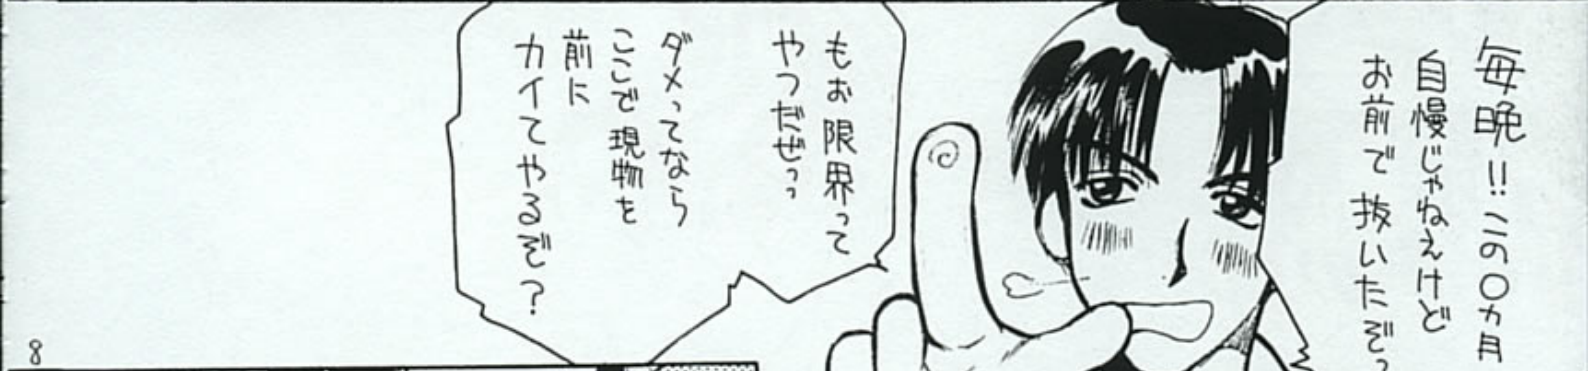 毎晩!!この〇カ月
自慢じゃねえけど
お前で抜いたぞっ
もお限界って
やつだぜっっ
ダメってなら
ここで現物を
前に
カイてやるぞ?
8